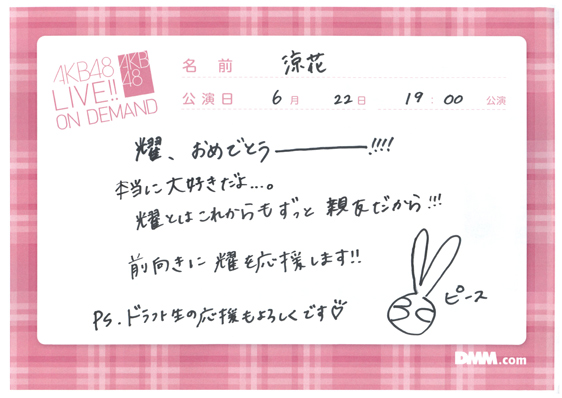 AKB48
LIVE!!
ON DEMAND
AKB
48
名前 涼花
公演日 6月 22日 19:00 公演
耀、おめでとう――――!!!!
本当に大好きだよ...。
耀とはこれからもずっと親友だから!!!
前向きに耀を応援します!!
ピース
PS.ドラフト生の応援もよろしくです♡
DMM.com